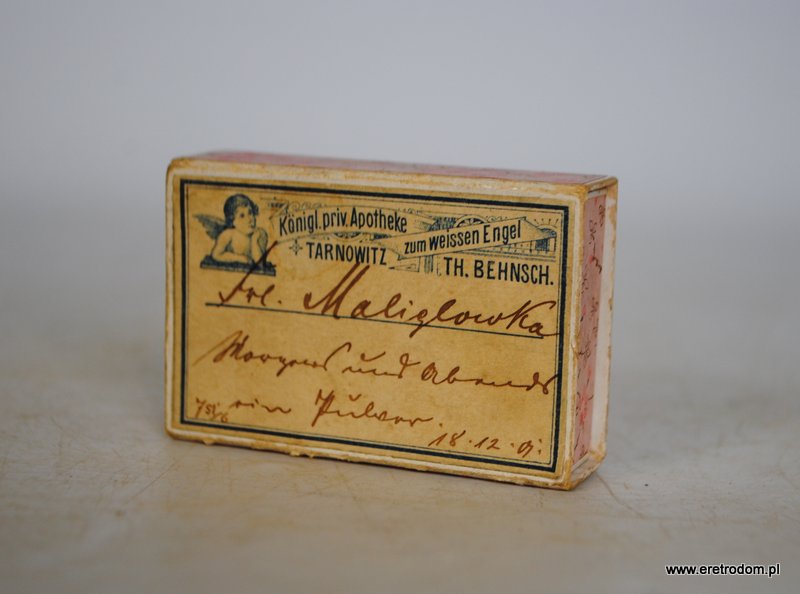 Königl. priv. Apotheke
zum weissen Engel
TARNOWITZ
TH. BEHNSCH.
Frl. Maliglowka
Morgens und Abends
ein Pulver.
18.12.01.
www.eretrodom.pl